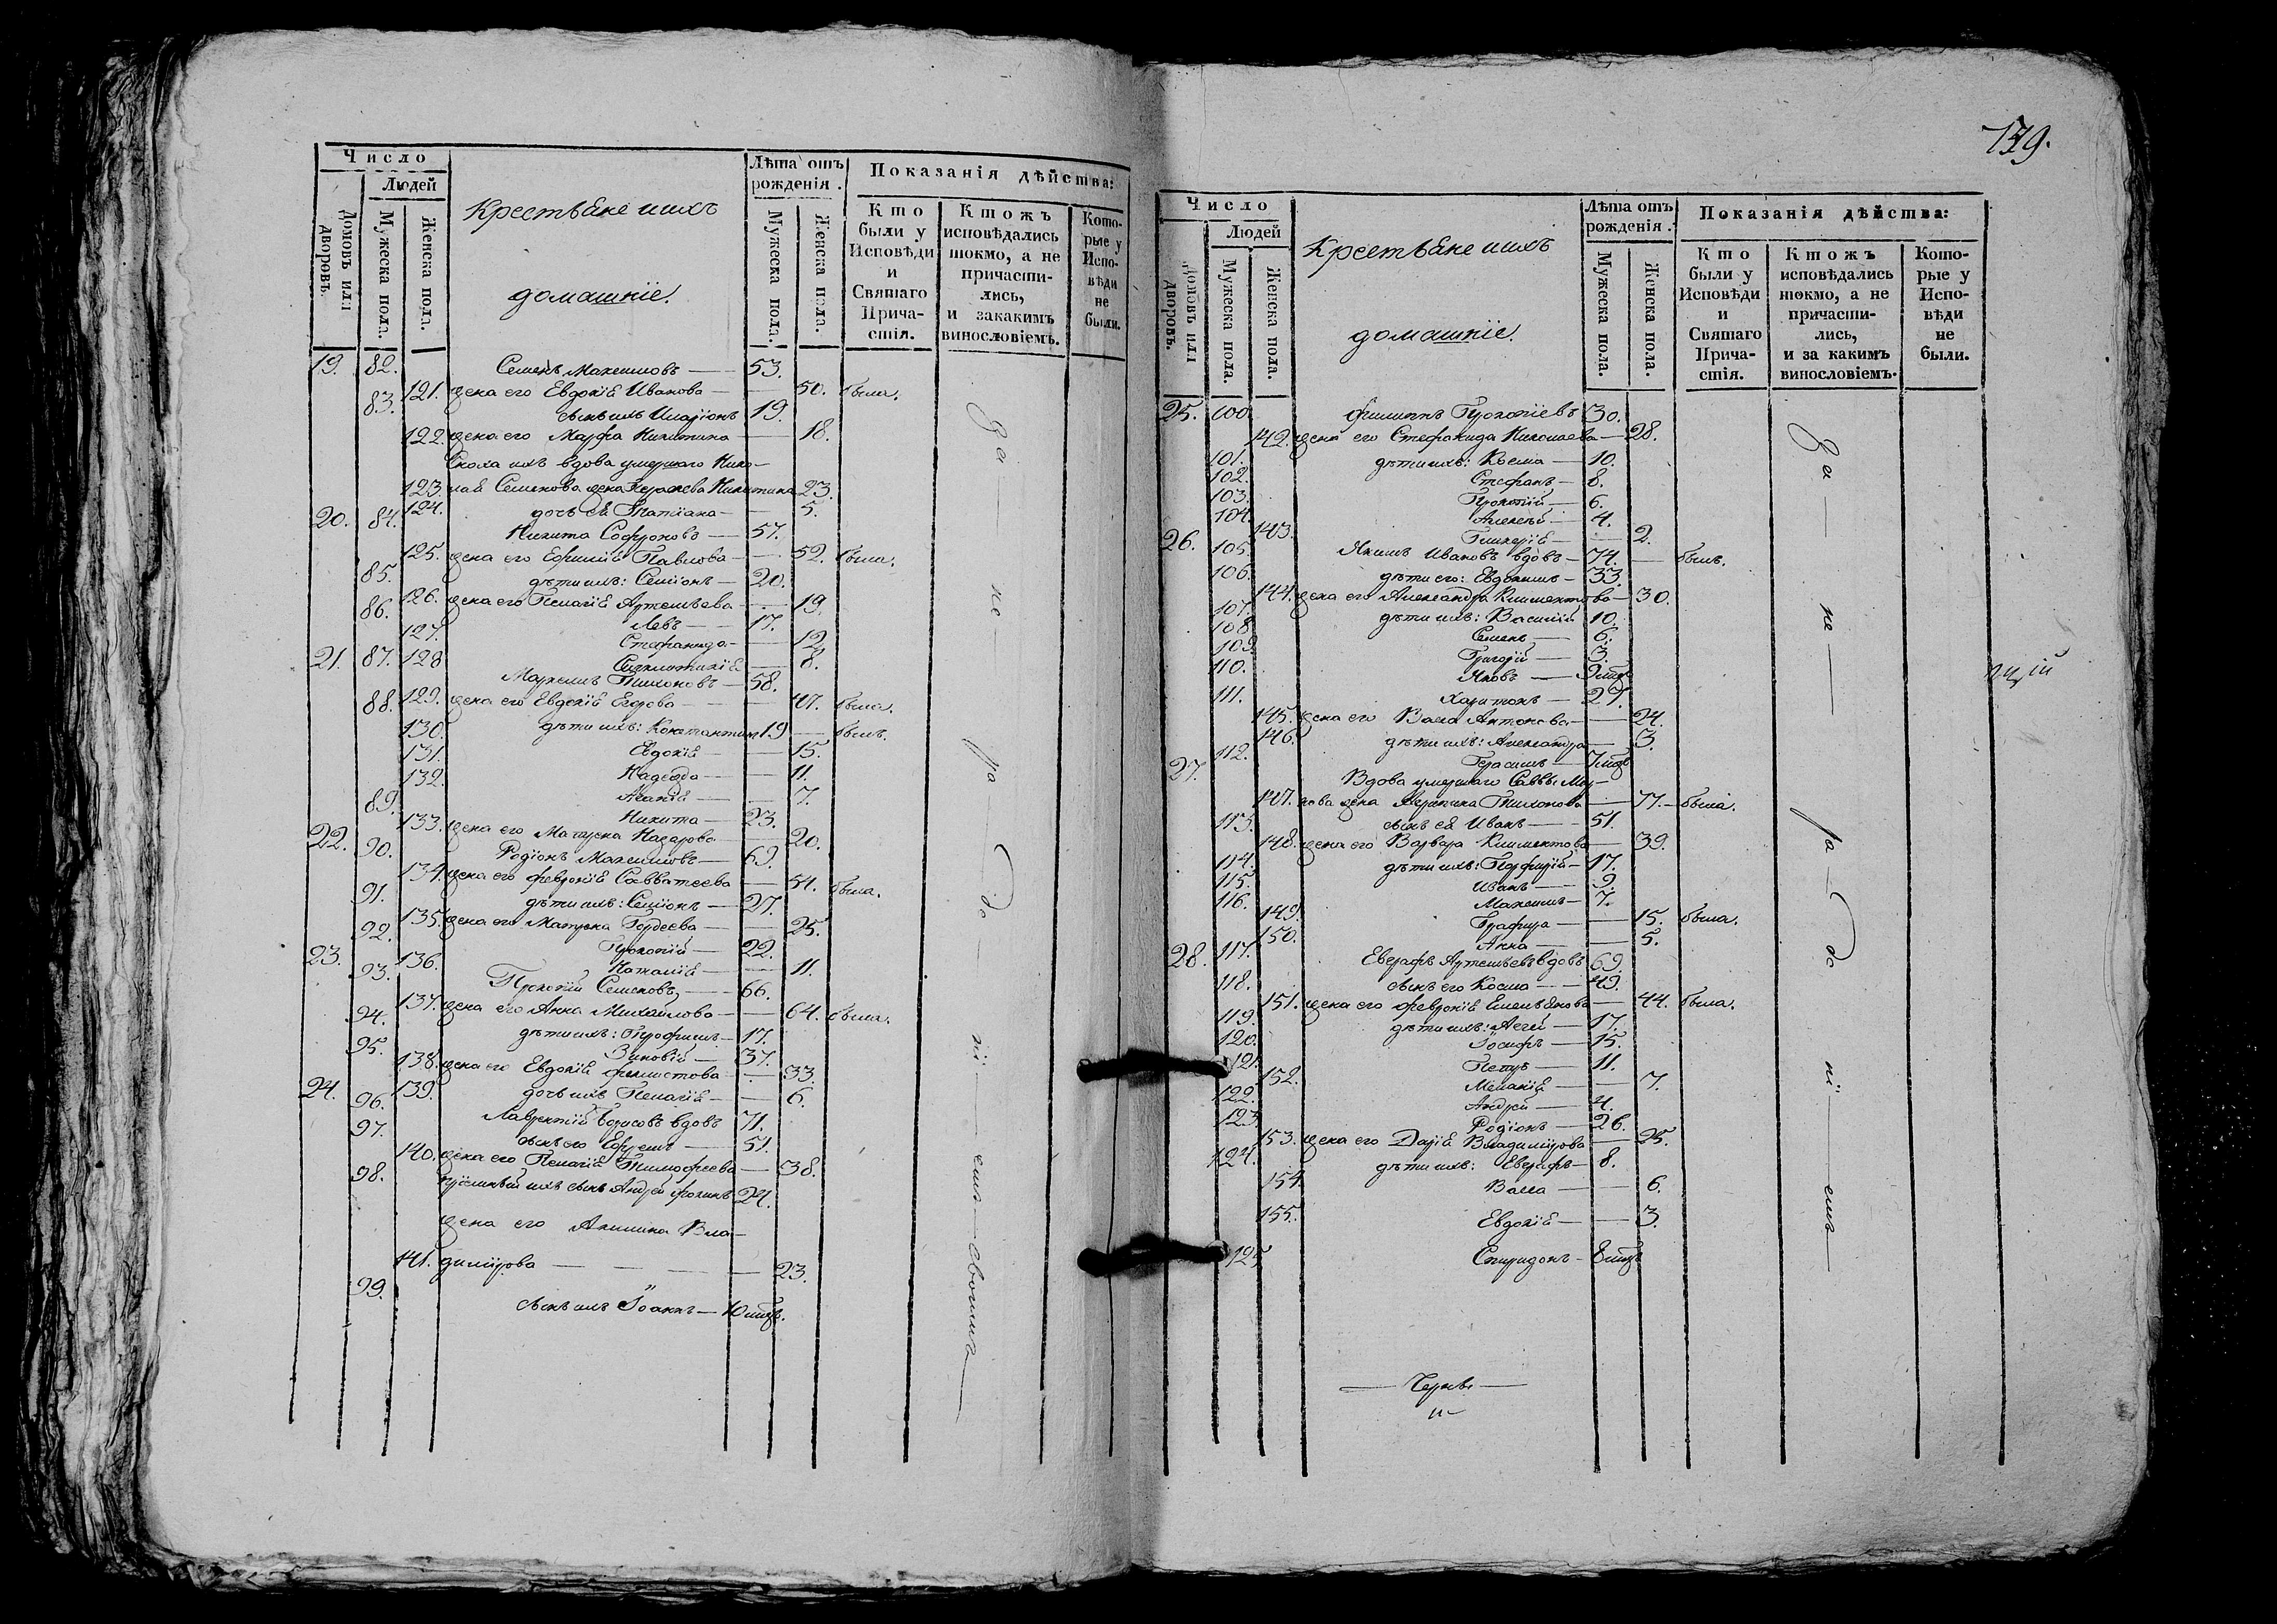 Число
Людей
Домовъ или дворовъ.
Мужеска пола.
Женска пола.
Крестьяне ихъ
домашніе.
Лѣта отъ рожденія.
Мужеска пола.
Женска пола.
Показанія дѣйства:
Кто были у Исповѣди и Святаго Причастія.
Ктожъ исповѣдались токмо, а не причастились, и закакимъ винословіемъ.
Которые у Исповѣди не были.
19. 82. Семенъ Максимовъ — 53.
121. жена его Евдокія Иванова — 50. была.
83. сынъ ихъ Иларіонъ 19.
122. жена его Марфа Никитина — 18.
Сноха ихъ вдова умершаго Нико-
123. лая Семенова жена Никитина 23.
124. дочь ея Татіана — 5.
20. 84. Никита Софроновъ — 57.
125. жена его Ефимія Павлова — 52. была.
85. дѣти ихъ: Семіонъ — 20.
126. жена его Пелагія Артемьева — 19.
86. Левъ — 17.
127. Стефанида — 12.
128 Синклитикія — 8.
21. 87. Маркелъ Тихоновъ — 58.
88. 129. жена его Евдокія Егорова — 47. была.
дѣти ихъ: Константинъ 19 — былъ.
130. Евдокія — 15.
131. Надежда — 11.
132. 7.
89. Никита — 23.
133. жена его Матрена Назарова — 20.
22. 90. Родіонъ Максимовъ — 69.
134. жена его Февронія Савватеева — 54. была.
91. дѣти ихъ: Семіонъ — 27.
135. жена его Матрена Гордеева — 25.
92. Прокопій — 22.
136. Наталія — 11.
23. 93. Прокопій Семеновъ — 66.
137. жена его Анна Михайлова — 64. была.
94. дѣти ихъ: Трофимъ — 17.
95. Зиновій — 37.
138. жена его Евдокія — 33.
139. дочь ихъ Пелагія — 6.
24. 96. Лаврентій Борисовъ вдовъ 71.
97. сынъ его Ефремъ — 51.
140. жена его Пелагія Тимофеева — 38.
98. ихъ сынъ Андрей 24.
жена его Акилина Вла-
141. димірова — 23.
99. сынъ ихъ Іоаннъ — 10 мѣс.
За — не — ра — до — ні — емъ — своимъ —
179.
Число
Людей
Домовъ или дворовъ.
Мужеска пола.
Женска пола.
Крестьяне ихъ
домашніе.
Лѣта отъ рожденія.
Мужеска пола.
Женска пола.
Показанія дѣйства:
Кто были у Исповѣди и Святаго Причастія.
Ктожъ исповѣдались токмо, а не причастились, и за какимъ винословіемъ.
Которые у Исповѣди не были.
25. 100. Филиппъ Прокопіевъ 30.
142. жена его Стефанида Николаева — 28.
101. дѣти ихъ: Косма — 10.
102. Стефанъ — 8.
103. Прокопій — 6.
104. Алексѣй — 4.
143. Гликерія — 2.
26. 105. Якимъ Ивановъ вдовъ — 74. — былъ.
106. дѣти его: Евдокимъ — 33.
144. жена его Александра Климентова — 30.
107. дѣти ихъ: Василій 10.
108. Семенъ — 6.
109. Григорій — 3.
110. Яковъ —
111. Харитонъ — 27.
145. жена его Васса Антонова — 24.
146. дѣти ихъ: Александра — 3.
112. Герасимъ — 7 мѣс.
27. Вдова умершаго Саввы
147. жена Тихонова — 77. — была.
113. сынъ ея Иванъ — 51.
148. жена его Варвара Климентова — 39.
114. дѣти ихъ: Порфирій — 17.
115. Иванъ — 9.
116. Максимъ — 7.
149. Глафира — 15. была.
150. Анна — 5.
28. 117. Евграфъ Артемьевъ вдовъ 69.
118. сынъ его Косма — 49.
151. жена его Февронія Емельянова — 44. была.
119. дѣти ихъ: Аггей — 17.
120. Іосифъ — 15.
121. Петръ — 11.
152. Меланія — 7.
122. Андрей — 4.
123. Родіонъ — 26.
153. жена его Дарія Владимірова — 25.
124. дѣти ихъ: Евграфъ — 8.
154. Васса — 6.
155. Евдокія — 3.
125. Спиридонъ — 8 мѣс.
За — не — ра — до — ні — емъ —